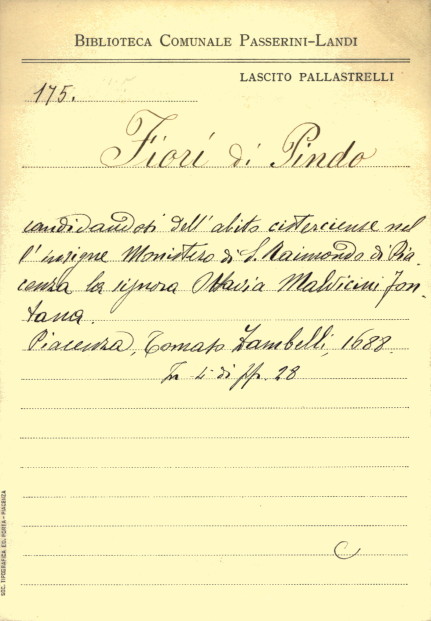 BIBLIOTECA COMUNALE PASSERINI-LANDI
LASCITO PALLASTRELLI
175.
Fiori di Pindo
candidandosi dell'abito cisterciense nel
l'insigne Monistero di S. Raimondo di Pia
cenza la signora Ottavia Malvicini Fon-
tana.
Piacenza, Tomaso Zambelli, 1688.
In 4 di pp. 28
C
SOC. TIPOGRAFICA ED. PORTA - PIACENZA